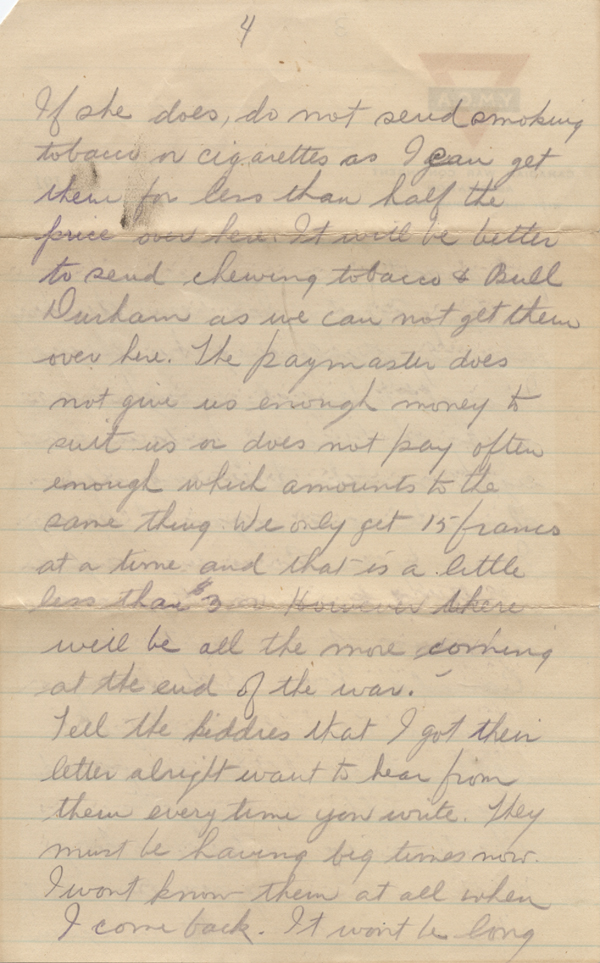 4
If she does, do not send smoking
tobacco or cigarettes as I can get
them for less than half the
price over here. It will be better
to send chewing tobacco & Bull
Durham as we can not get them
over here. The paymaster does
not give us enough money to
suit us or does not pay often
enough which amounts to the
same thing. We only get 15 francs
at a time and that is a little
less than $3.00 However there
will be all the more coming
at the end of the war.
Tell the kiddies that I got their
letter alright want to hear from
them every time you write. They
must be having big times now.
I wont know them at all when
I come back. It wont be long